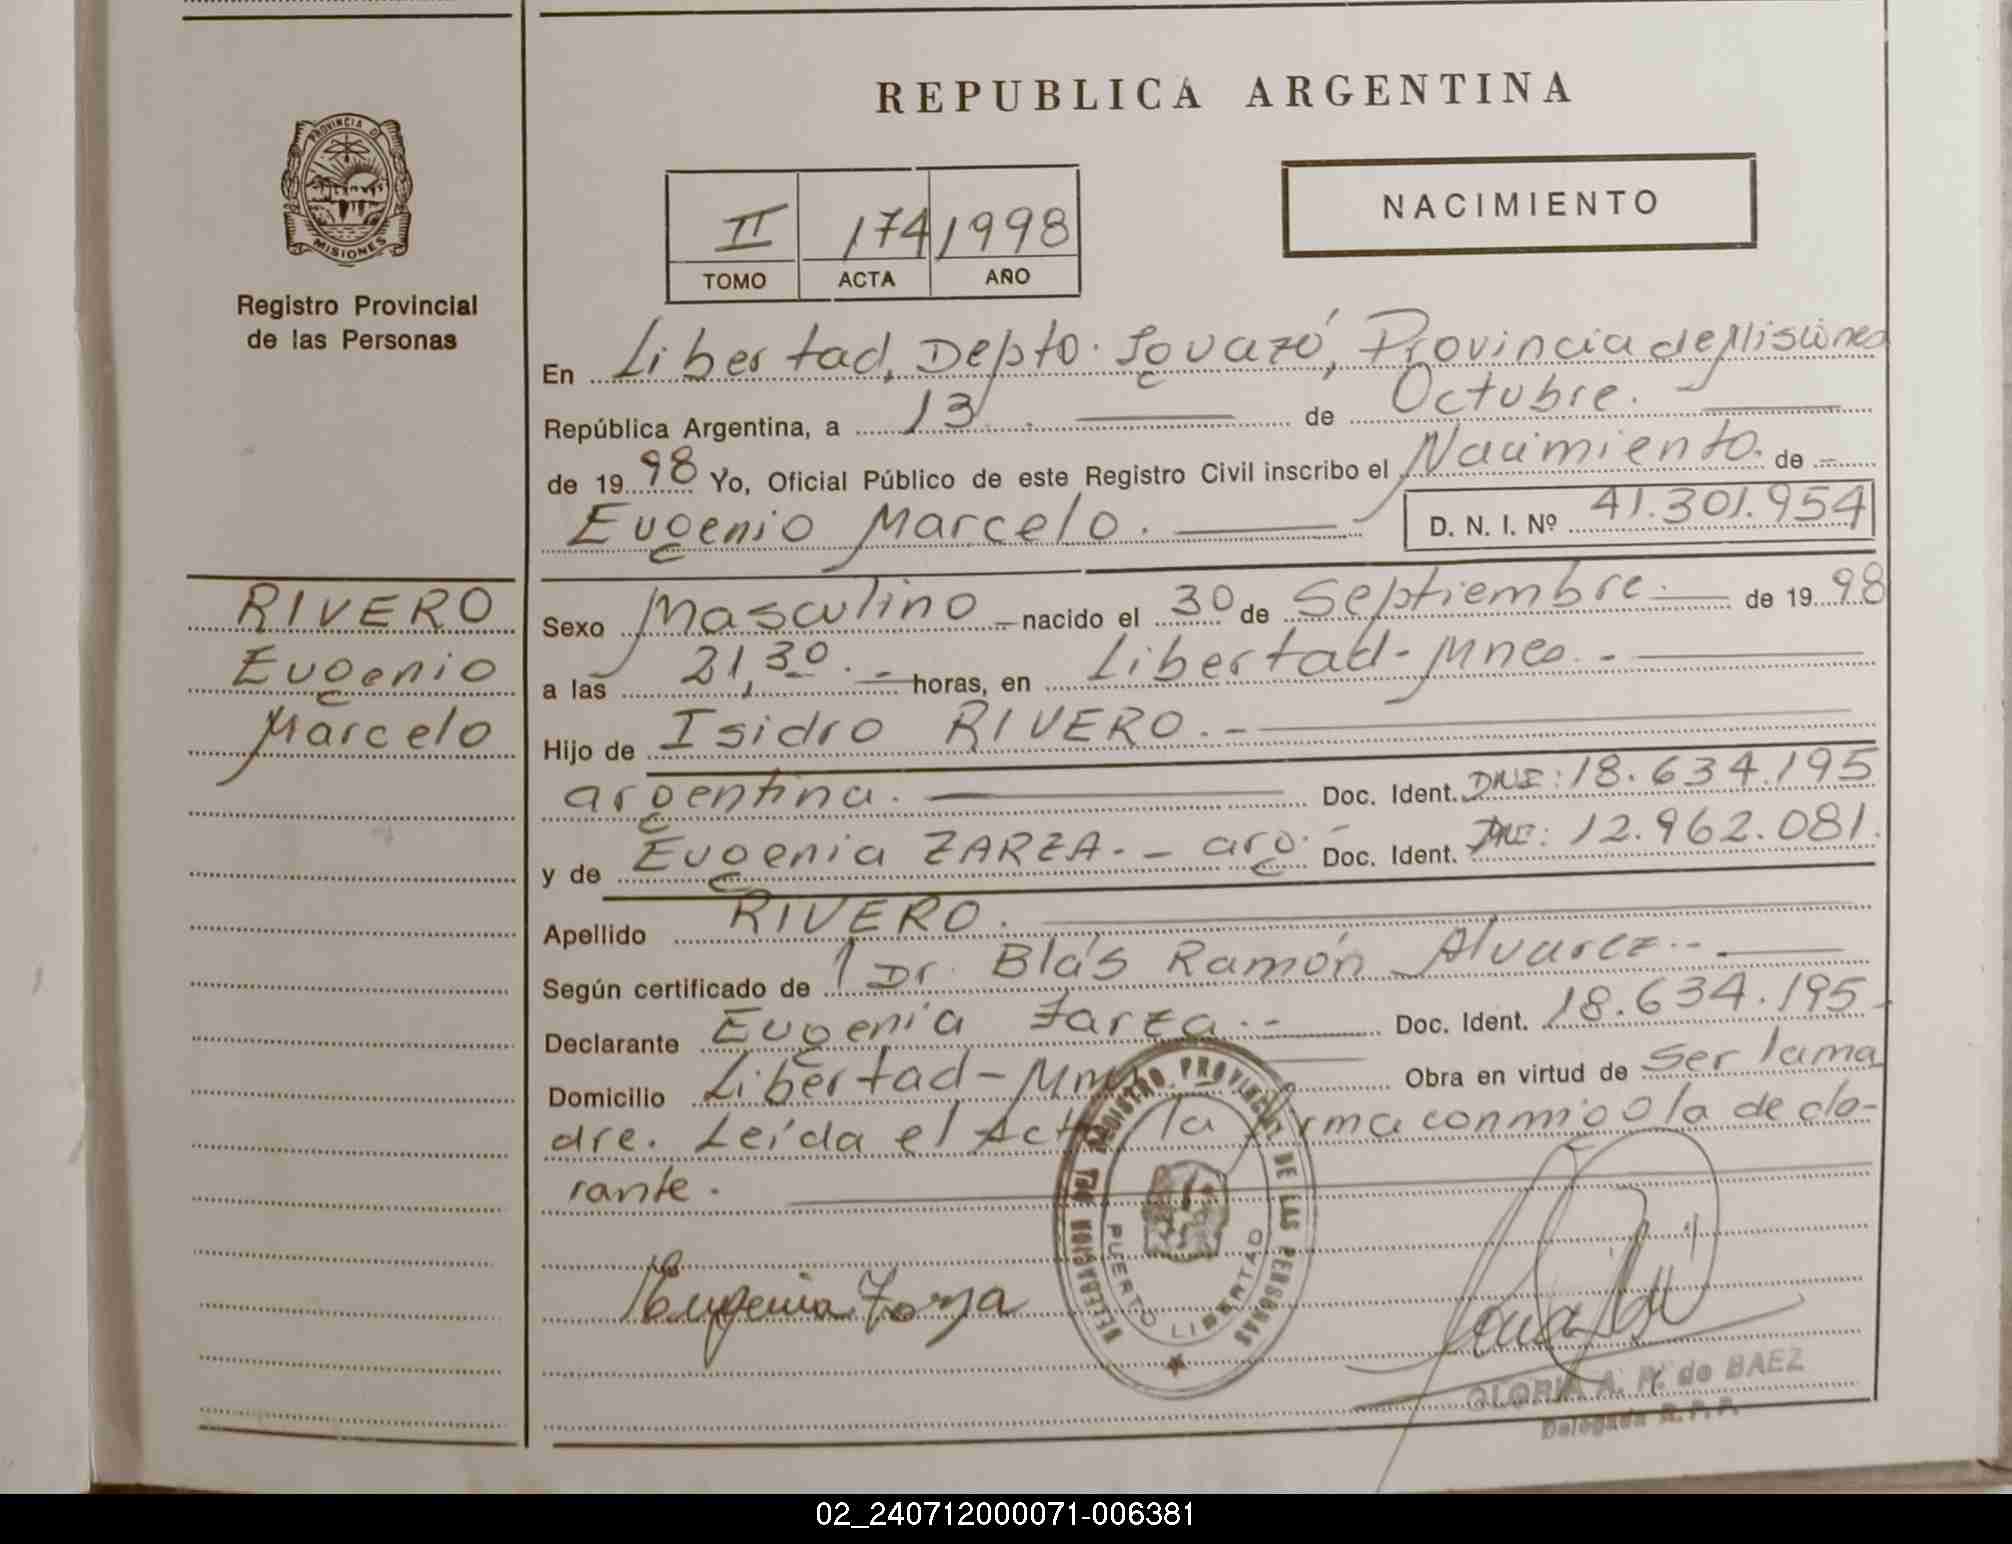 REPUBLICA ARGENTINA
PROVINCIA DE
MISIONES
Registro Provincial
de las Personas
II 174 1998
TOMO ACTA AÑO
NACIMIENTO
En Libertad, Depto. Iguazú, Provincia de Misiones
República Argentina, a 13 de Octubre.
de 1998 Yo, Oficial Público de este Registro Civil inscribo el Nacimiento. de
Eugenio Marcelo. D. N. I. Nº 41.301.954
RIVERO
Eugenio
Marcelo
Sexo Masculino nacido el 30 de Septiembre. de 1998
a las 21,30. horas, en Libertad-Mnes.
Hijo de Isidro RIVERO.
argentina. Doc. Ident. DNI: 18.634.195
y de Eugenia ZARZA. arg. Doc. Ident. DNI: 12.962.081.
Apellido RIVERO.
Según certificado de Dr. Blás Ramón Alvarez.
Declarante Eugenia Zarza. Doc. Ident. 18.634.195
Domicilio Libertad-Mnes Obra en virtud de ser la ma
dre. Leída el Acta la firma conmigo la decla-
rante.
Eugenia Zarza
REGISTRO PROVINCIAL DE LAS PERSONAS
DELEGACION
PUERTO LIBERTAD
GLORIA A. P. de BAEZ
Delegada R. P. P.
02_240712000071-006381